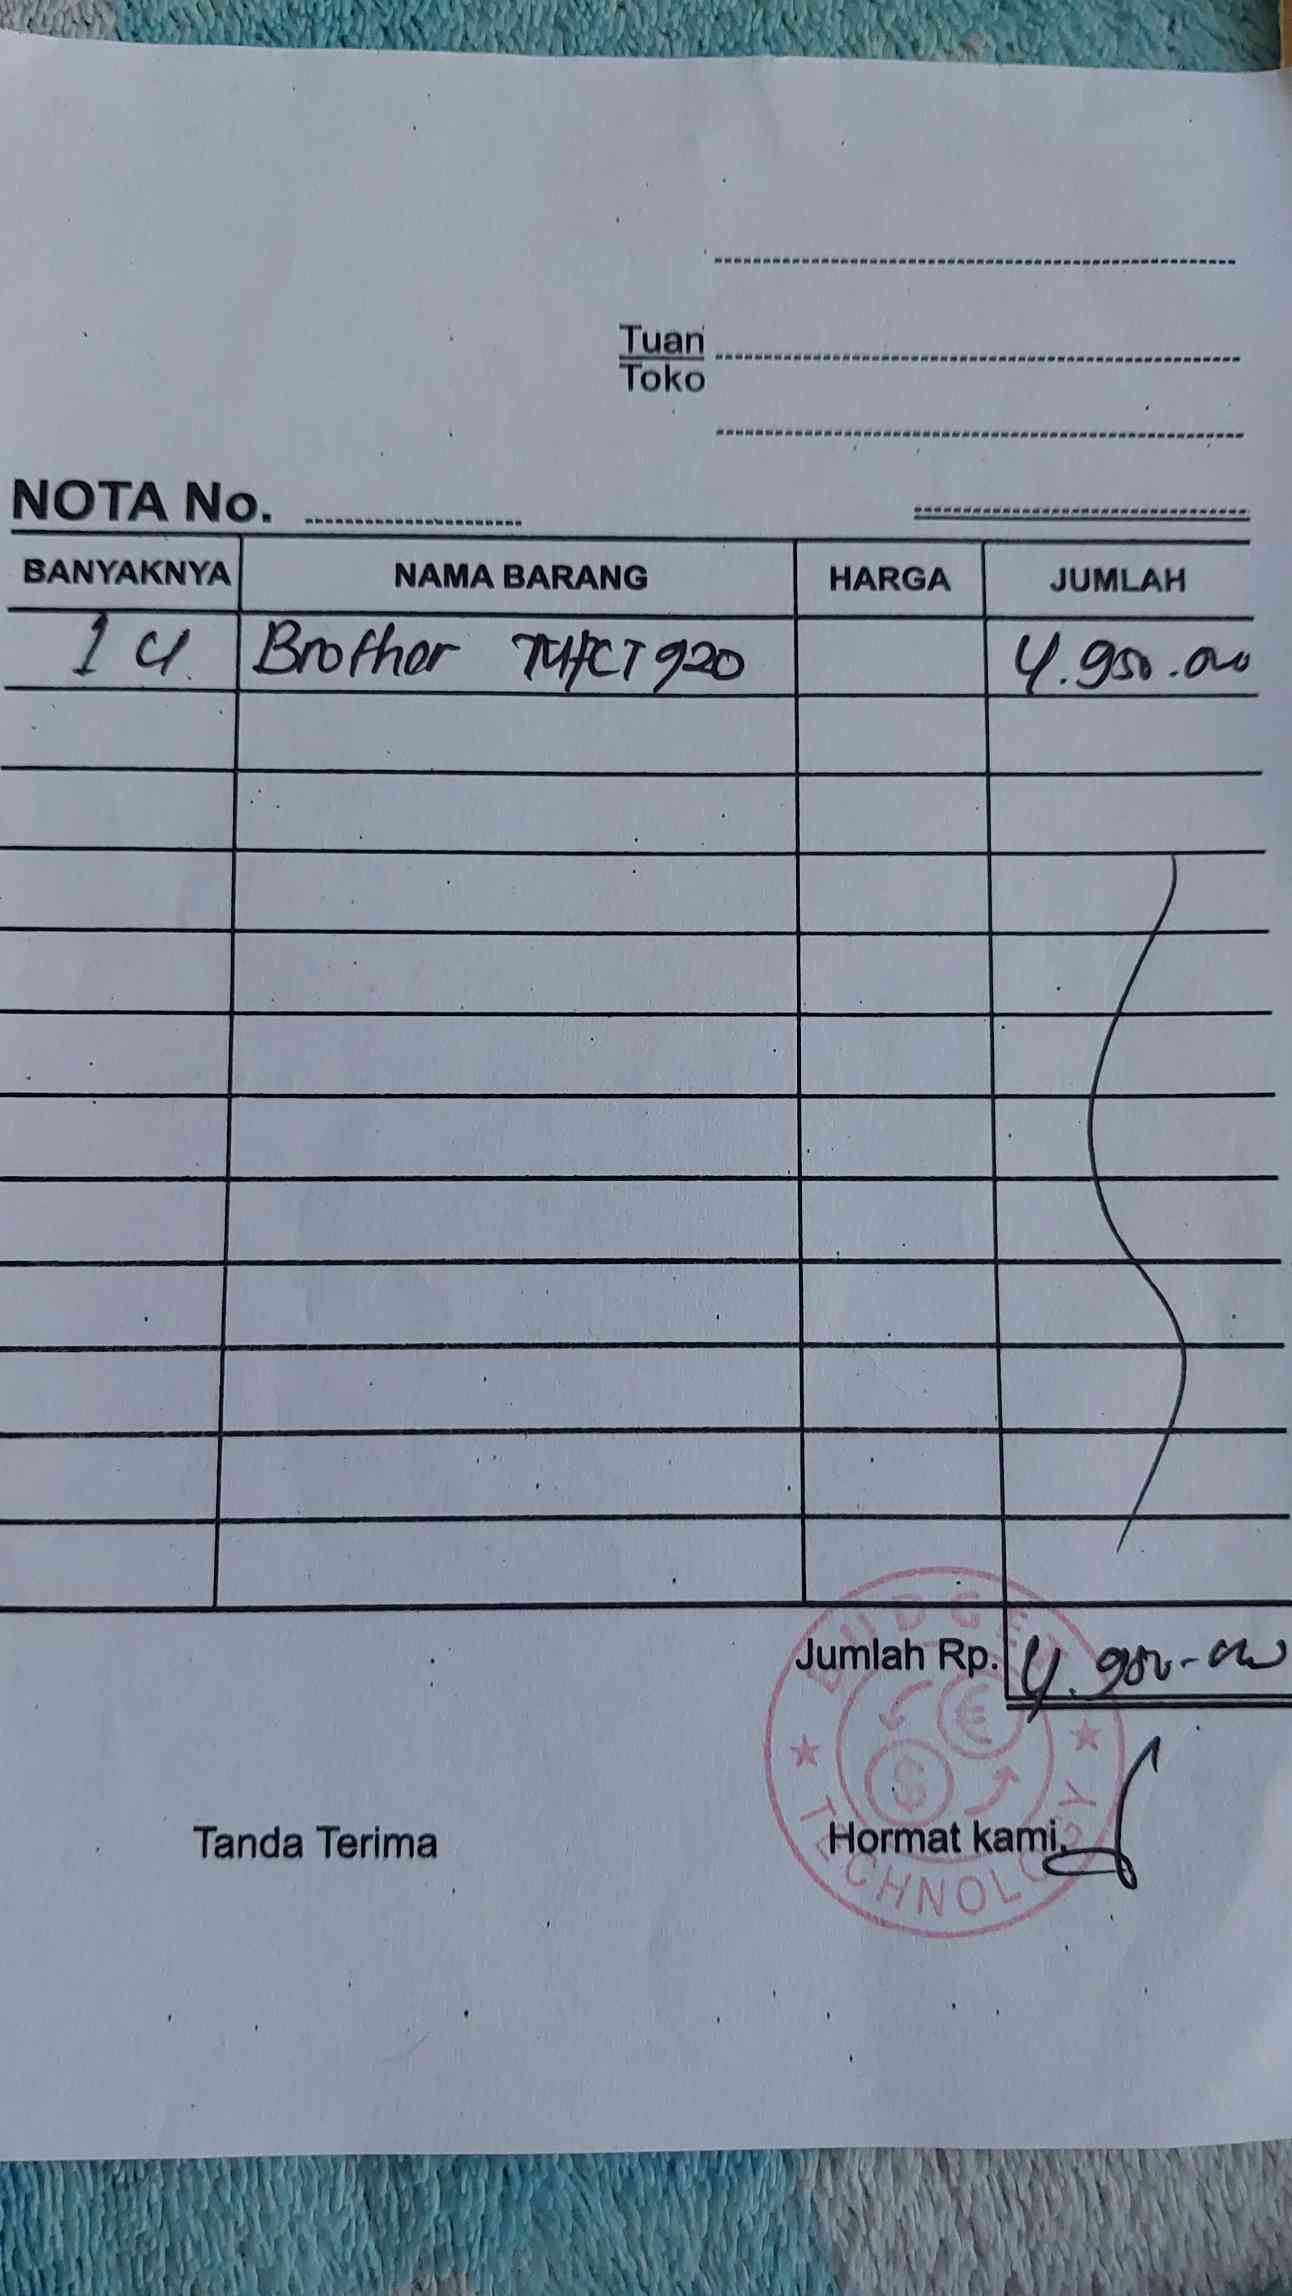 Tuan
Toko
NOTA No.
BANYAKNYA NAMA BARANG HARGA JUMLAH
1 Brother 920 4.950.000
Jumlah Rp. 4.950.000
BUDGET
TECHNOLOGY
Tanda Terima Hormat kami,